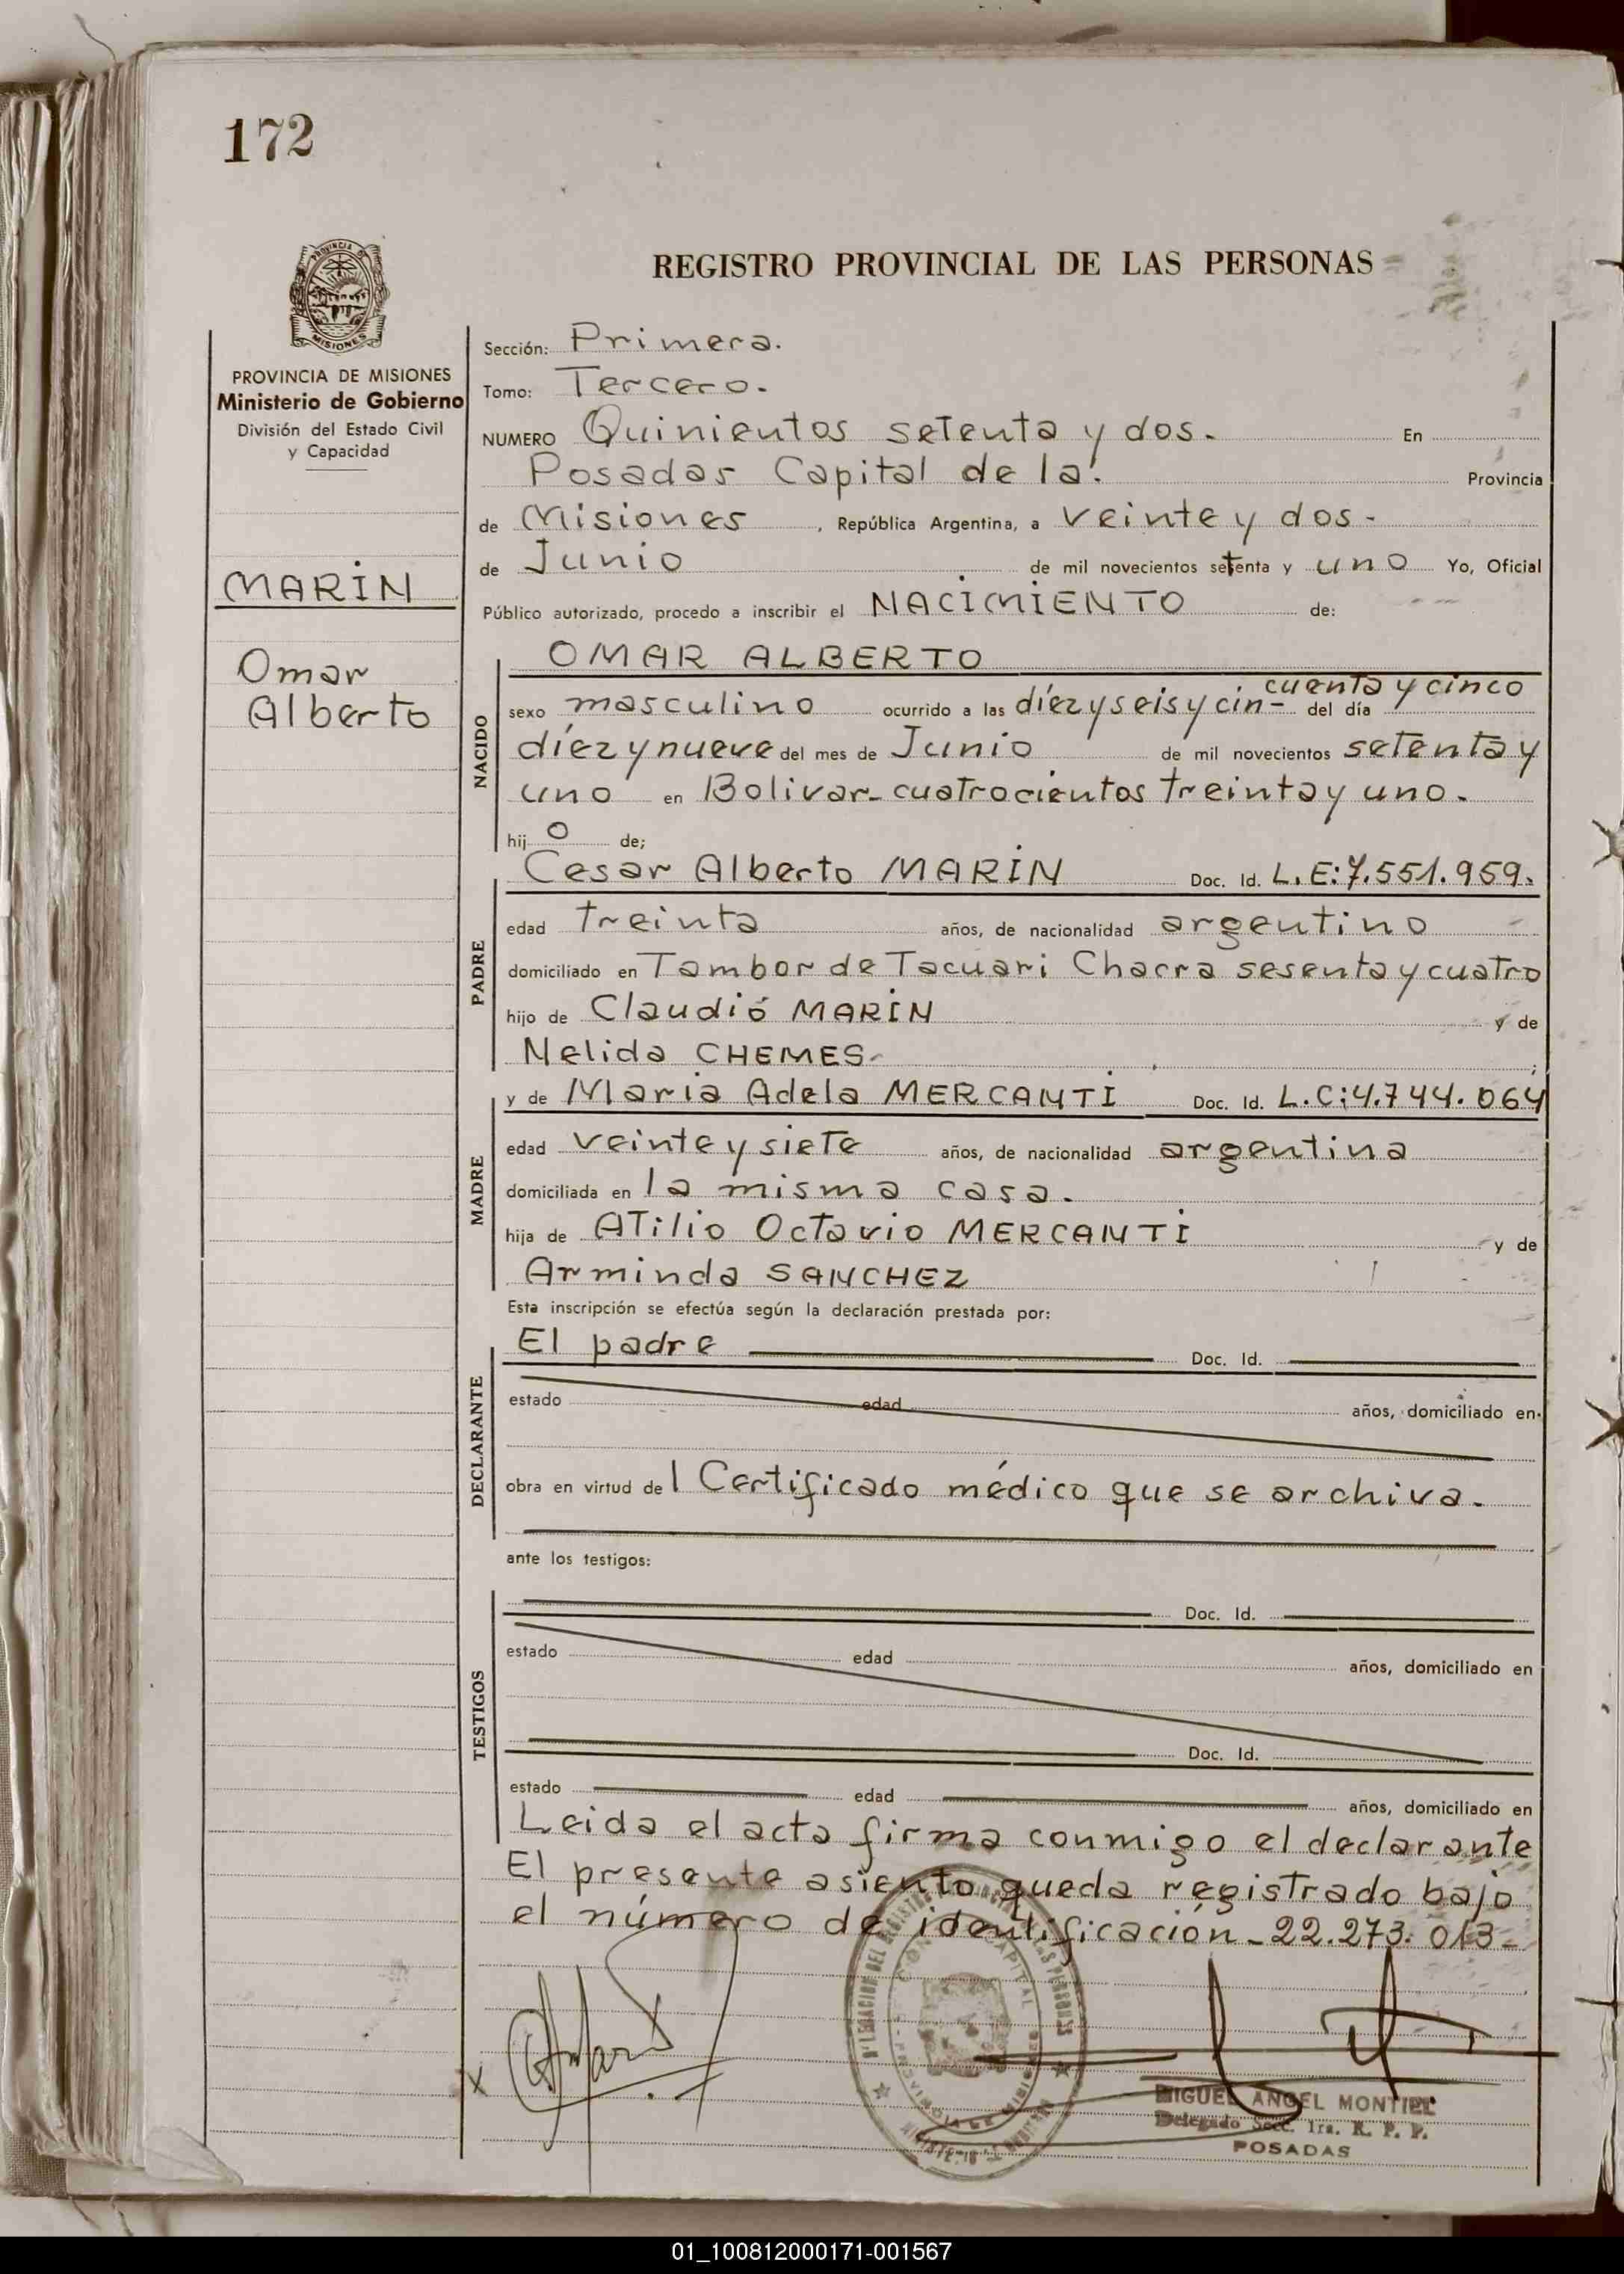 172
PROVINCIA DE
MISIONES
REGISTRO PROVINCIAL DE LAS PERSONAS
PROVINCIA DE MISIONES
Ministerio de Gobierno
División del Estado Civil
y Capacidad
MARIN
Omar
Alberto
Sección: Primera.
Tomo: Tercero.
NUMERO Quinientos setenta y dos. En
Posadas Capital de la. Provincia
de Misiones, República Argentina, a veinte y dos.
de Junio de mil novecientos setenta y uno Yo, Oficial
Público autorizado, procedo a inscribir el NACIMIENTO de:
NACIDO
OMAR ALBERTO
cuenta y cinco
sexo masculino ocurrido a las diez y seis y cin- del día
diez y nueve del mes de Junio de mil novecientos setenta y
uno en Bolivar-cuatrocientos treinta y uno.
hij o de;
PADRE
Cesar Alberto MARIN Doc. Id. L.E:7.551.959.
edad treinta años, de nacionalidad argentino
domiciliado en Tambor de Tacuari Chacra sesenta y cuatro
hijo de Claudió MARIN y de
Nelida CHEMES.
MADRE
y de Maria Adela MERCANTI Doc. Id. L.C:4.744.064
edad veinte y siete años, de nacionalidad argentina
domiciliada en la misma casa.
hija de Atilio Octavio MERCANTI y de
Arminda SANCHEZ
Esta inscripción se efectúa según la declaración prestada por:
DECLARANTE
El padre Doc. Id.
estado edad años, domiciliado en
obra en virtud del Certificado médico que se archiva.
ante los testigos:
TESTIGOS
Doc. Id.
estado edad años, domiciliado en
Doc. Id.
estado edad años, domiciliado en
Leida el acta firma conmigo el declarante
El presente asiento queda registrado bajo
el número de identificación-22.273.013-
MIGUEL ANGEL MONTIEL
Delegado Secc. 1ra. R. P. P.
POSADAS
01_100812000171-001567